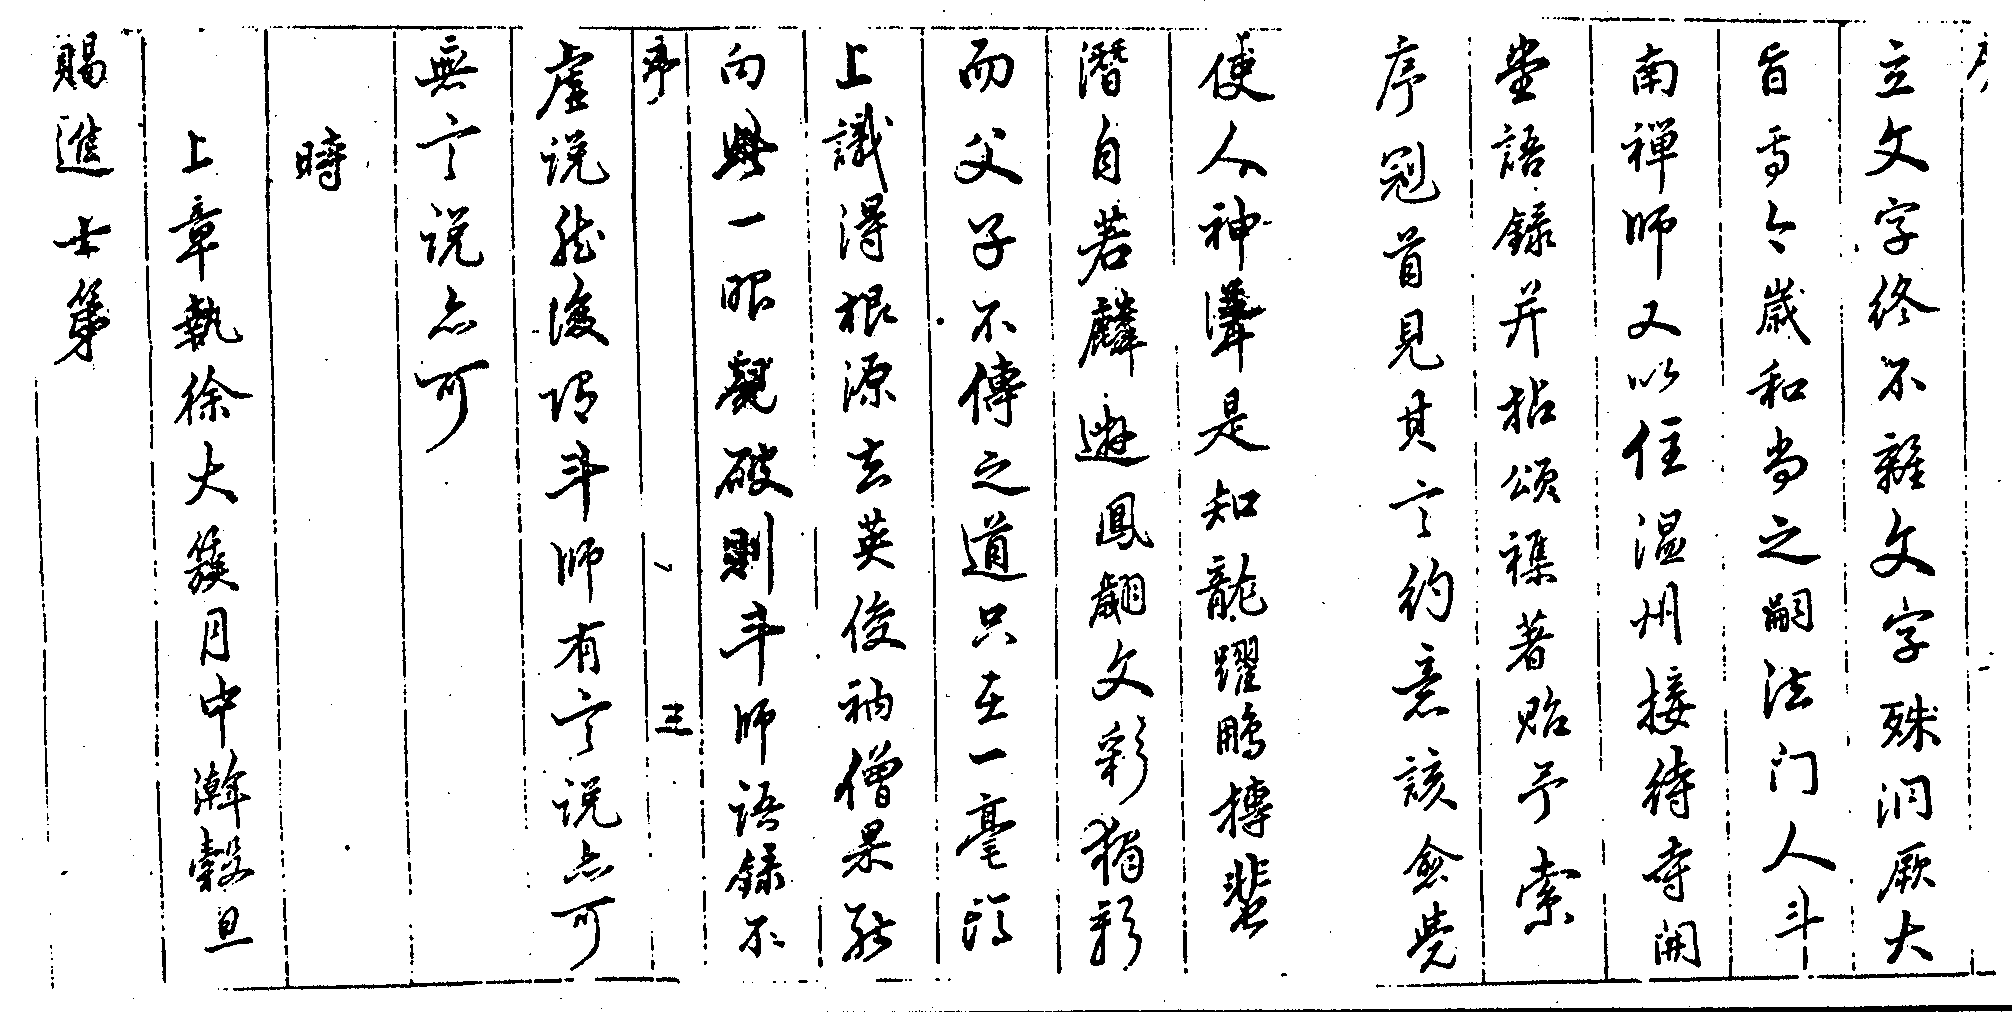 立文字終不離文字殊洞厥大
旨焉今歲和尚之嗣法門人斗
南禅師又以住温州接待寺開
堂語録并拈頌襍著貽予索
序冠首見其言約意該愈覺
使人神聳是知龍躍鵬摶
潛自若麟遊鳳翽文彩猶彰
而父子不傳之道只在一毫頭
上識得根源去英俊衲僧果能
向此一眼覷破則斗師語録不
序 三
虛说然後限斗师有言说亦可
無言说亦可
時
上章執徐大簇月中澣穀旦
賜進士第